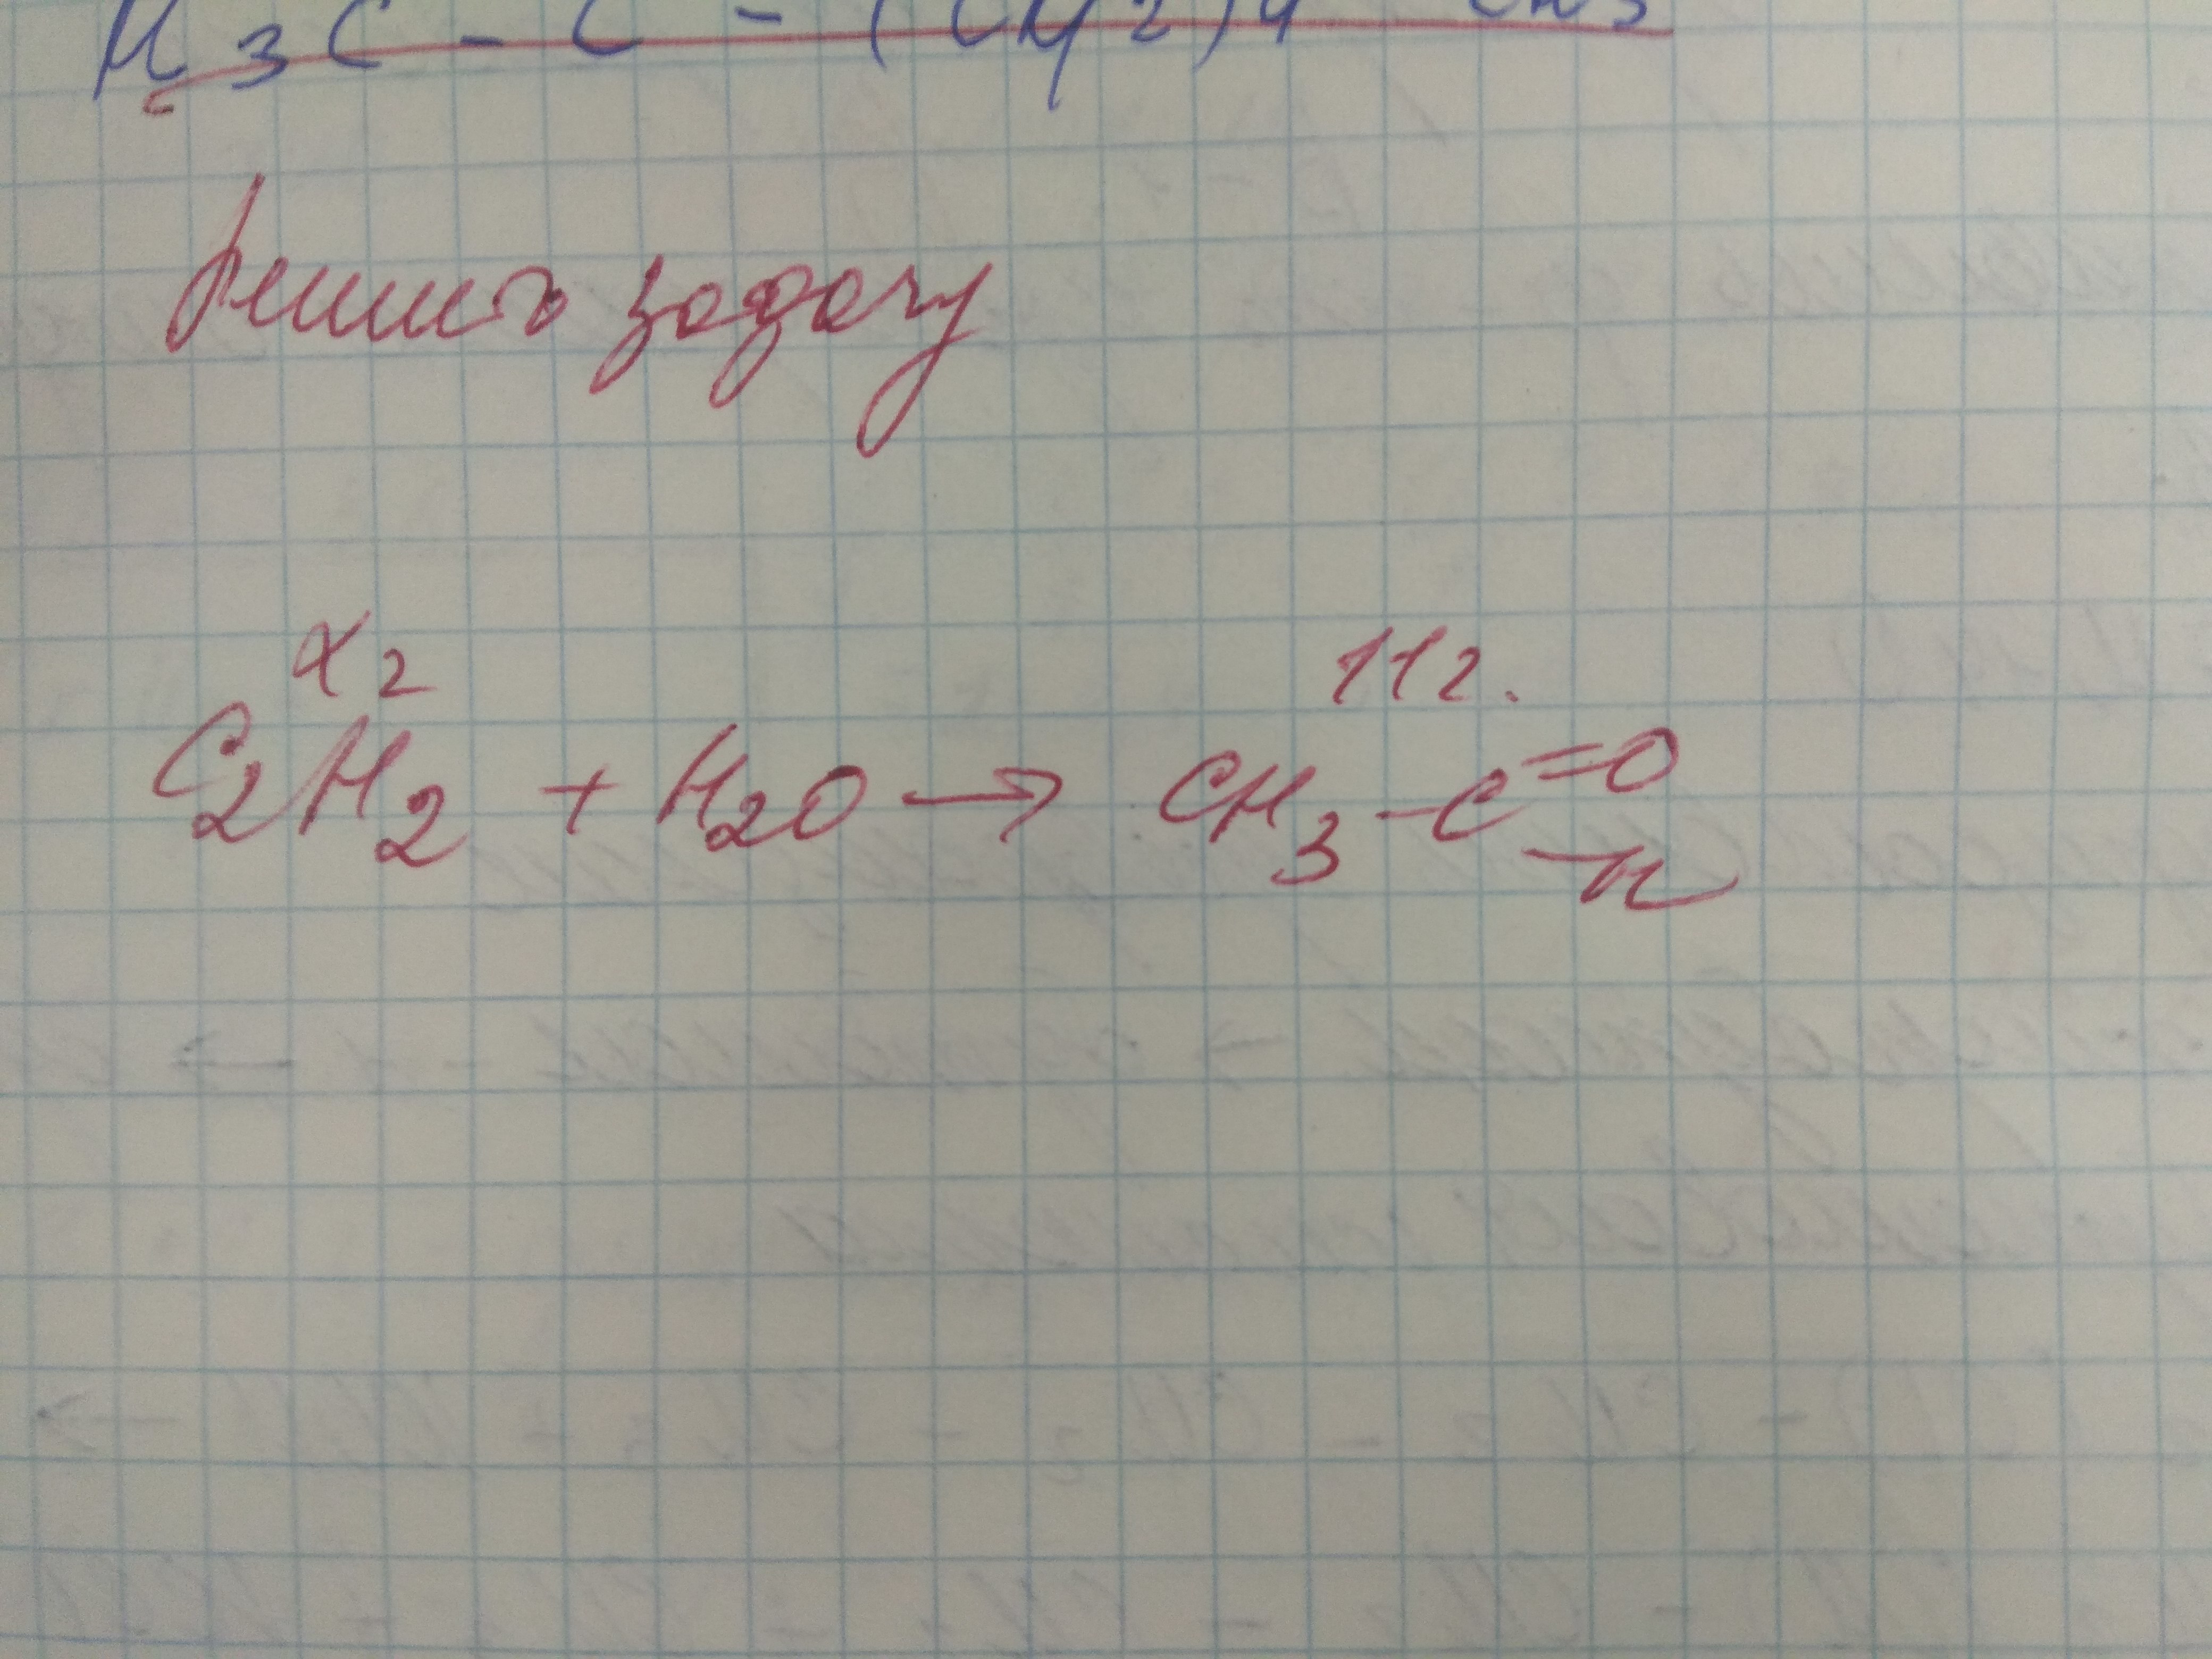 H3C - C - (CH2)4 CH3
Решить задачу
x г 11 г.
C2H2 + H2O → CH3 - C =O
- H